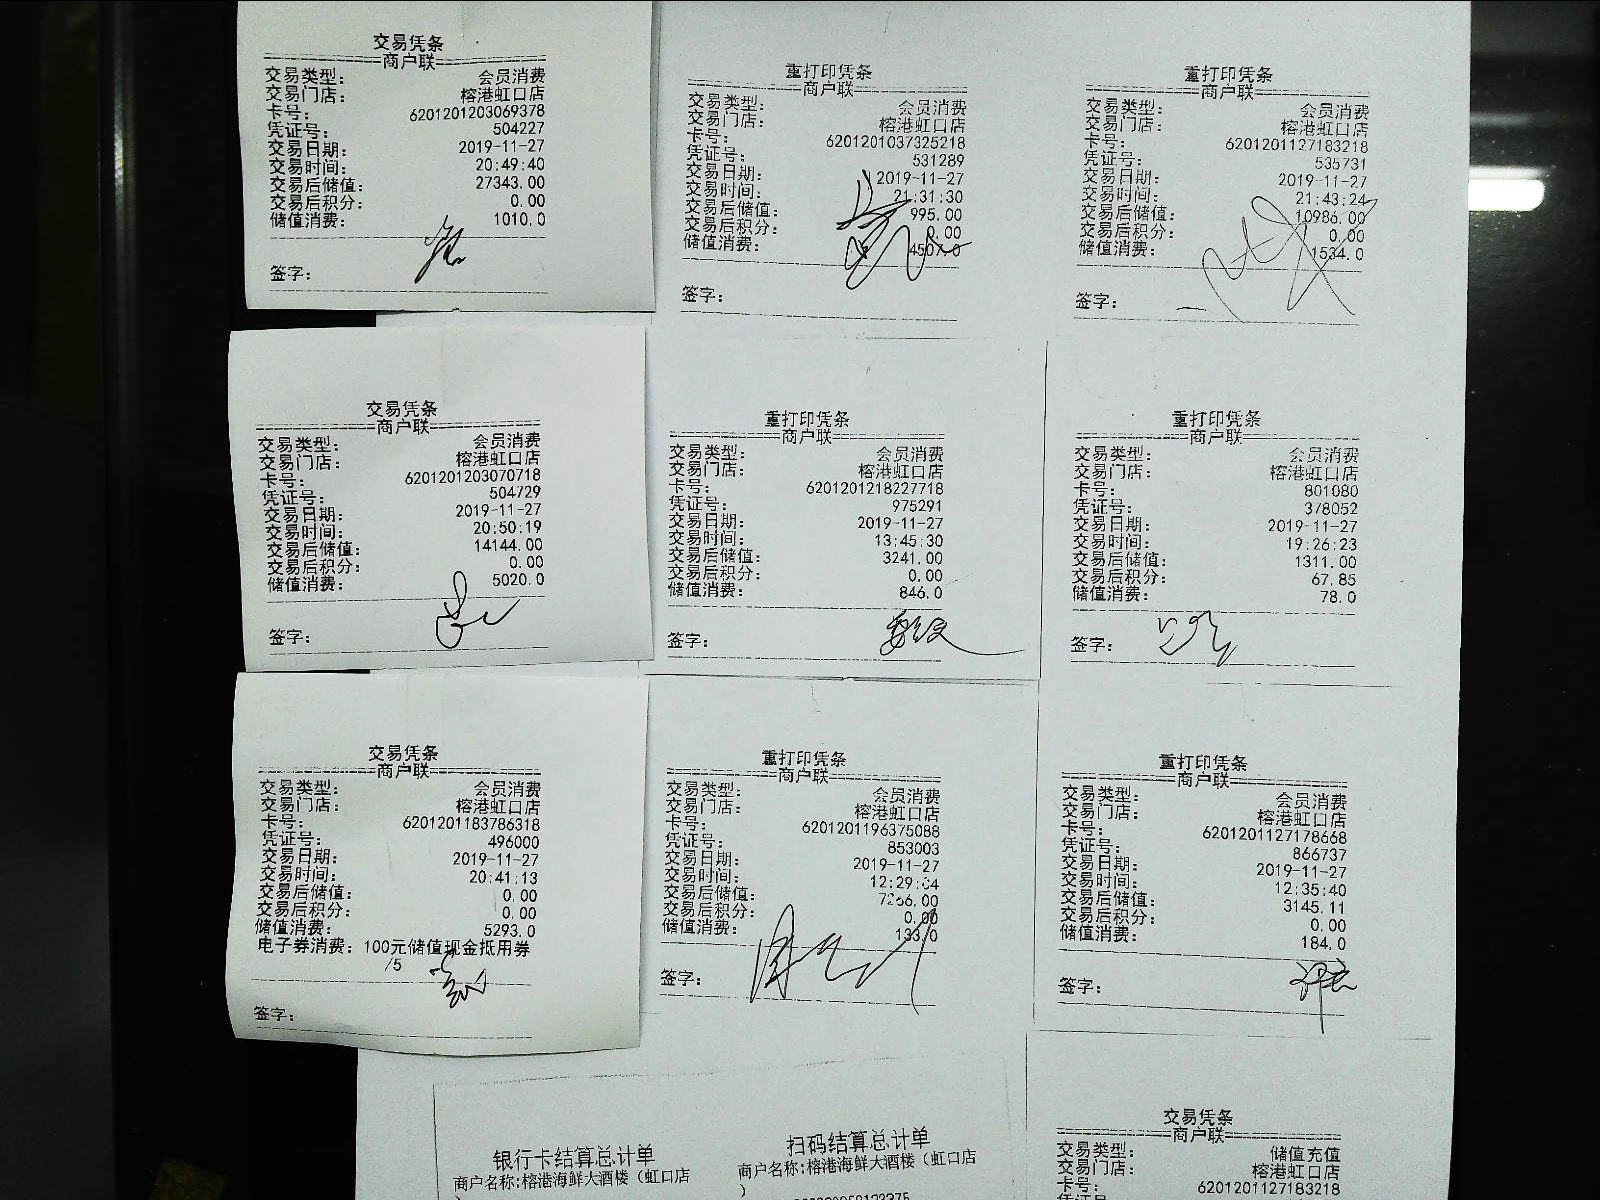 交易凭条
商户联
交易类型： 会员消费
交易门店： 榕港虹口店
卡号： 6201201203069378
凭证号： 504227
交易日期： 2019-11-27
交易时间： 20:49:40
交易后储值： 27343.00
交易后积分： 0.00
储值消费： 1010.0
签字：
重打印凭条
商户联
交易类型： 会员消费
交易门店： 榕港虹口店
卡号： 6201201037325218
凭证号： 531289
交易日期： 2019-11-27
交易时间： 21:31:30
交易后储值： 995.00
交易后积分： 0.00
储值消费： 4507.0
签字：
重打印凭条
商户联
交易类型： 会员消费
交易门店： 榕港虹口店
卡号： 6201201127183218
凭证号： 535731
交易日期： 2019-11-27
交易时间： 21:43:24
交易后储值： 10986.00
交易后积分： 0.00
储值消费： 1534.0
签字：
交易凭条
商户联
交易类型： 会员消费
交易门店： 榕港虹口店
卡号： 6201201203070718
凭证号： 504729
交易日期： 2019-11-27
交易时间： 20:50:19
交易后储值： 14144.00
交易后积分： 0.00
储值消费： 5020.0
签字：
重打印凭条
商户联
交易类型： 会员消费
交易门店： 榕港虹口店
卡号： 6201201218227718
凭证号： 975291
交易日期： 2019-11-27
交易时间： 13:45:30
交易后储值： 3241.00
交易后积分： 0.00
储值消费： 846.0
签字：
重打印凭条
商户联
交易类型： 会员消费
交易门店： 榕港虹口店
卡号： 801080
凭证号： 378052
交易日期： 2019-11-27
交易时间： 19:26:23
交易后储值： 1311.00
交易后积分： 67.85
储值消费： 78.0
签字：
交易凭条
商户联
交易类型： 会员消费
交易门店： 榕港虹口店
卡号： 6201201183786318
凭证号： 496000
交易日期： 2019-11-27
交易时间： 20:41:13
交易后储值： 0.00
交易后积分： 0.00
储值消费： 5293.0
电子券消费：100元储值现金抵用券
/5
签字：
重打印凭条
商户联
交易类型： 会员消费
交易门店： 榕港虹口店
卡号： 6201201196375088
凭证号： 853003
交易日期： 2019-11-27
交易时间： 12:29:04
交易后储值： 7266.00
交易后积分： 0.00
储值消费： 133.0
签字：
重打印凭条
商户联
交易类型： 会员消费
交易门店： 榕港虹口店
卡号： 6201201127178668
凭证号： 866737
交易日期： 2019-11-27
交易时间： 12:35:40
交易后储值： 3145.11
交易后积分： 0.00
储值消费： 184.0
签字：
银行卡结算总计单
商户名称:榕港海鲜大酒楼（虹口店
）
扫码结算总计单
商户名称:榕港海鲜大酒楼（虹口店
）
交易凭条
商户联
交易类型： 储值充值
交易门店： 榕港虹口店
卡号： 6201201127183218